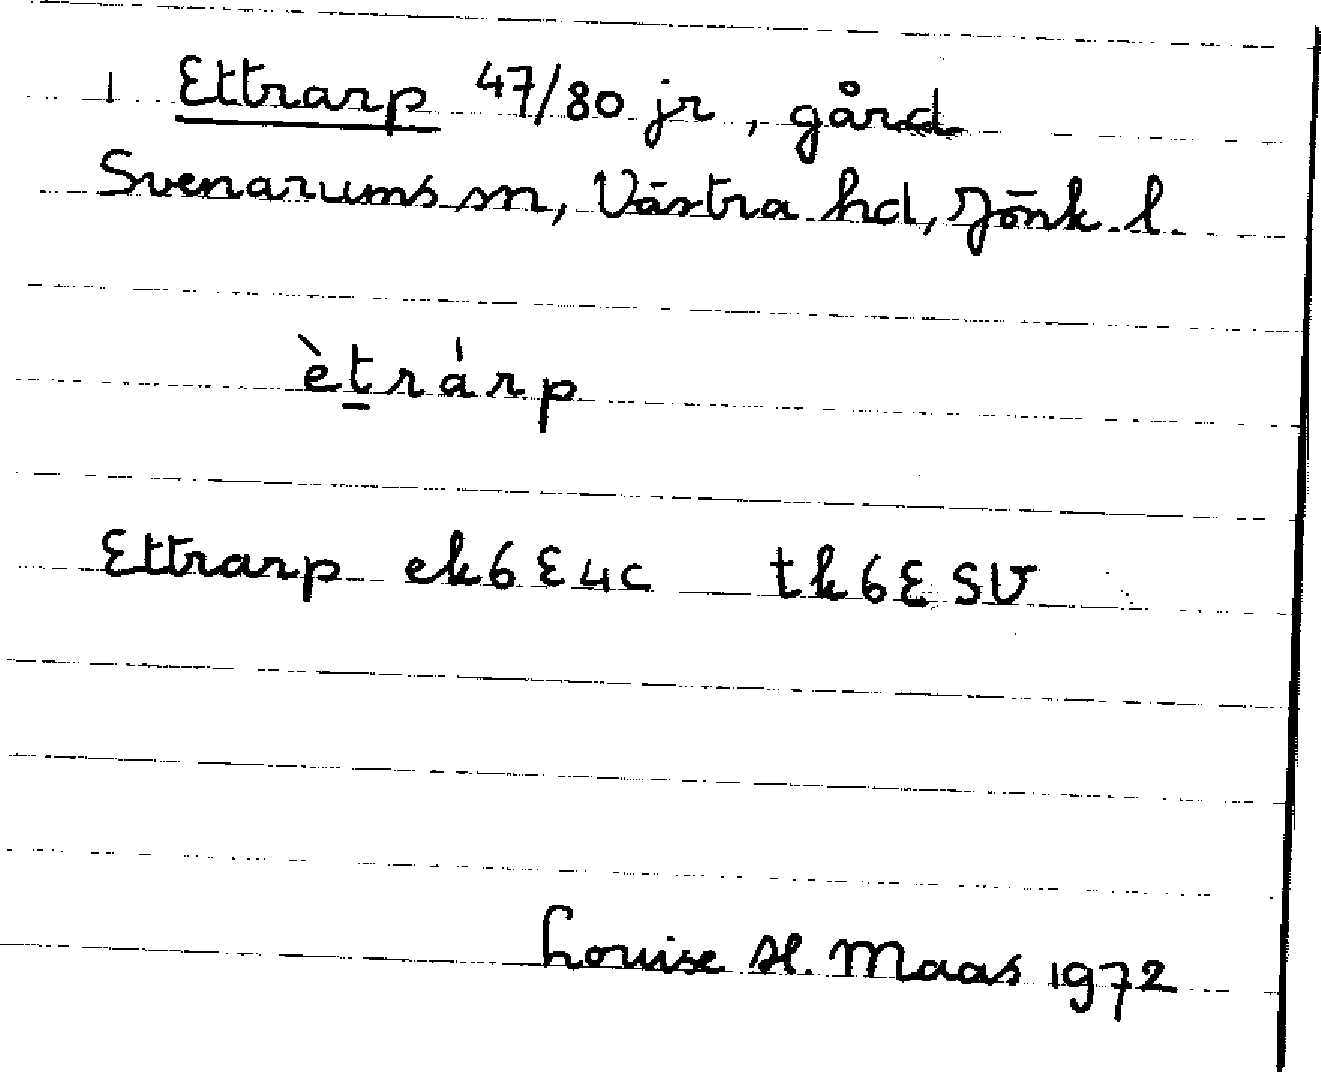 1 Ettrarp 47/80 jr, gård
Svenarums sn, Västra hd, Jönk. l.
ètrárp
Ettrarp ek6E4c tk6ESV
Louise H. Maas 1972